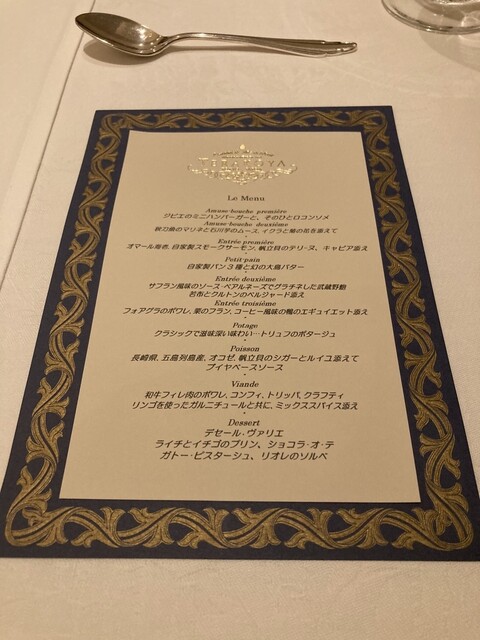 TERAKOYA
Le Menu
Amuse-bouche première
ジビエのミニハンバーガーと、そのひとロコンソメ
Amuse-bouche deuxième
秋刀魚のマリネと石川芋のムース、イクラと菊の花を添えて
Entrée première
オマール海老、自家製スモークサーモン、帆立貝のテリーヌ、キャビア添え
Petit pain
自家製パン3種と幻の大島バター
Entrée deuxième
サフラン風味のソース・ベアルネーズでグラチネした武蔵野鮑
岩布とクルトンのペルシャード添え
Entrée troisième
フォアグラのポワレ、栗のフラン、コーヒー風味の鴨のエギュイエット添え
Potage
クラシックで滋味深い味わい…トリュフのポタージュ
Poisson
長崎県、五島列島産、オコゼ、帆立貝のシガーとルイユ添えて
ブイヤベースソース
Viande
和牛フィレ肉のポワレ、コンフィ、トリッパ、クラフティ
リンゴを使ったガルニチュールと共に、ミックススパイス添え
Dessert
デセール・ヴァリエ
ライチとイチゴのプリン、ショコラ・オ・テ
ガトー・ピスターシュ、リオレのソルベ